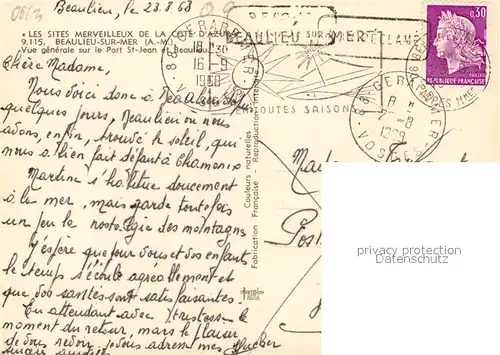 Beaulieu, le 23.8.68
« LES SITES MERVEILLEUX DE LA COTE D'AZUR
9.115. BEAULIEU-SUR-MER (A.-M.)
Vue générale sur le Port St-Jean et Beaulieu
BEAULIEU SUR MER
RECLAME
TOUTES SAISONS
GERARDMER
88
18 30
16-9
1968
GERARDMER
88
VOSGES
0,30
REPUBLIQUE FRANÇAISE
Couleurs naturelles
Fabrication Française - Reproduction interdite
Chère Madame,
Nous voici donc à Beaulieu pour
quelques jours, Beaulieu où nous
avons, enfin, trouvé le soleil, qui
nous a bien fait défaut à Chamonix
Martine s'habitue doucement
à la mer, mais garde toutefois
un peu la nostalgie des montagnes
J'espère que pour vous et vos enfants
le temps s'écoule agréablement et
que vos santés sont satisfaisantes.
En attendant avec tristesse le
moment du retour, mais le plaisir
de vous revoir, je vous adresse mes
privacy protection
www.oldthing.de